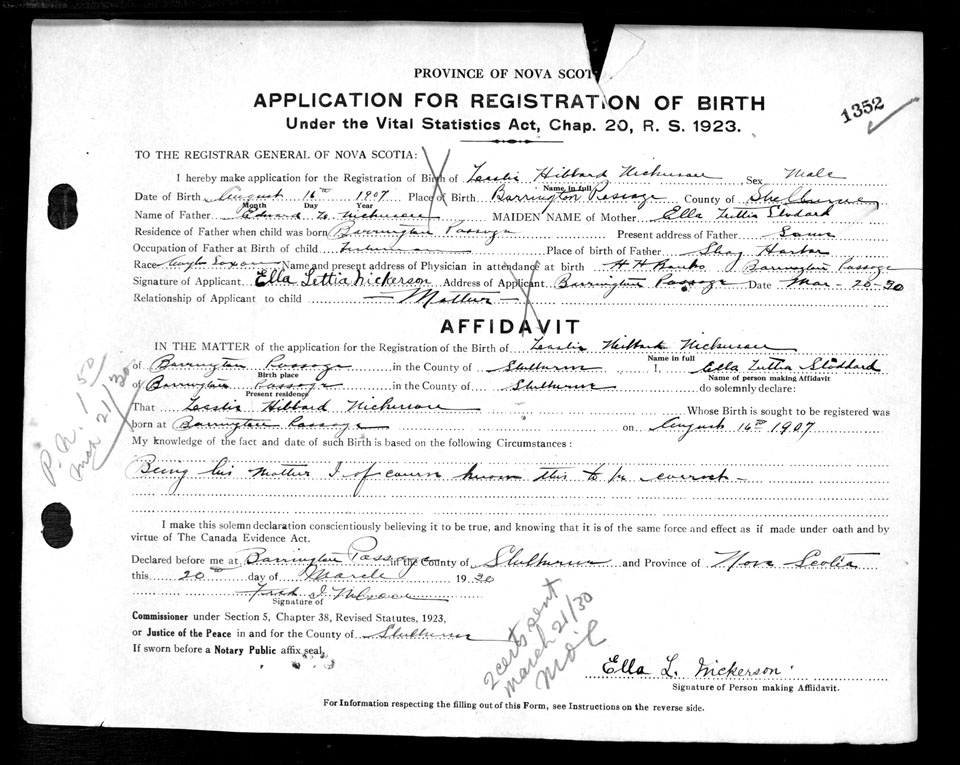 PROVINCE OF NOVA SCOT
APPLICATION FOR REGISTRATION OF BIRTH
Under the Vital Statistics Act, Chap. 20, R. S. 1923.
1352
TO THE REGISTRAR GENERAL OF NOVA SCOTIA:
I hereby make application for Registration of Birth of Leslie Hibbard Nickerson Sex Male
Name in full
Date of Birth August 16th 1907 Place of Birth Barrington Passage County of Shelburne
Month Day Year
Name of Father Edward Nickerson MAIDEN NAME of Mother Ella Lettia Stodard
Residence of Father when child was born Barrington Passage Present address of Father Same
Occupation of Father at Birth of child Fisherman Place of birth of Father Shag Harbor
Race Anglo Saxon Name and present address of Physician in attendance at birth H H Banks Barrington Passage
Signature of Applicant Ella Lettia Nickerson Address of Applicant Barrington Passage Date Mar - 20 - 30
Relationship of Applicant to child — Mother —
AFFIDAVIT
IN THE MATTER of the application for the Registration of the Birth of Leslie Hibbard Nickerson
Name in full
of Barrington Passage in the County of Shelburne I, Ella Lettia Stoddard
Birth place
Name of person making Affidavit
of Barrington Passage in the County of Shelburne do solemnly declare:
Present residence
That Leslie Hibbard Nickerson Whose Birth is sought to be registered was
born at Barrington Passage on August 16th 1907
My knowledge of the fact and date of such Birth is based on the following Circumstances:
Being his mother I of course know this to be correct -
P.N. 150
Mch 21/30
I make this solemn declaration conscientiously believing it to be true, and knowing that it is of the same force and effect as if made under oath and by
virtue of The Canada Evidence Act.
Declared before me at Barrington Passage in the County of Shelburne and Province of Nova Scotia
this 20th day of March 1930
Signature of
Commissioner under Section 5, Chapter 38, Revised Statutes, 1923,
or Justice of the Peace in and for the County of Shelburne
If sworn before a Notary Public affix seal,
2 certs sent
march 21/30
Ella L. Nickerson
Signature of Person making Affidavit.
For Information respecting the filling out of this Form, see Instructions on the reverse side.